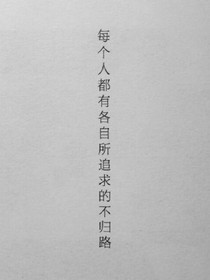 每个人都有各自所追求的不归路